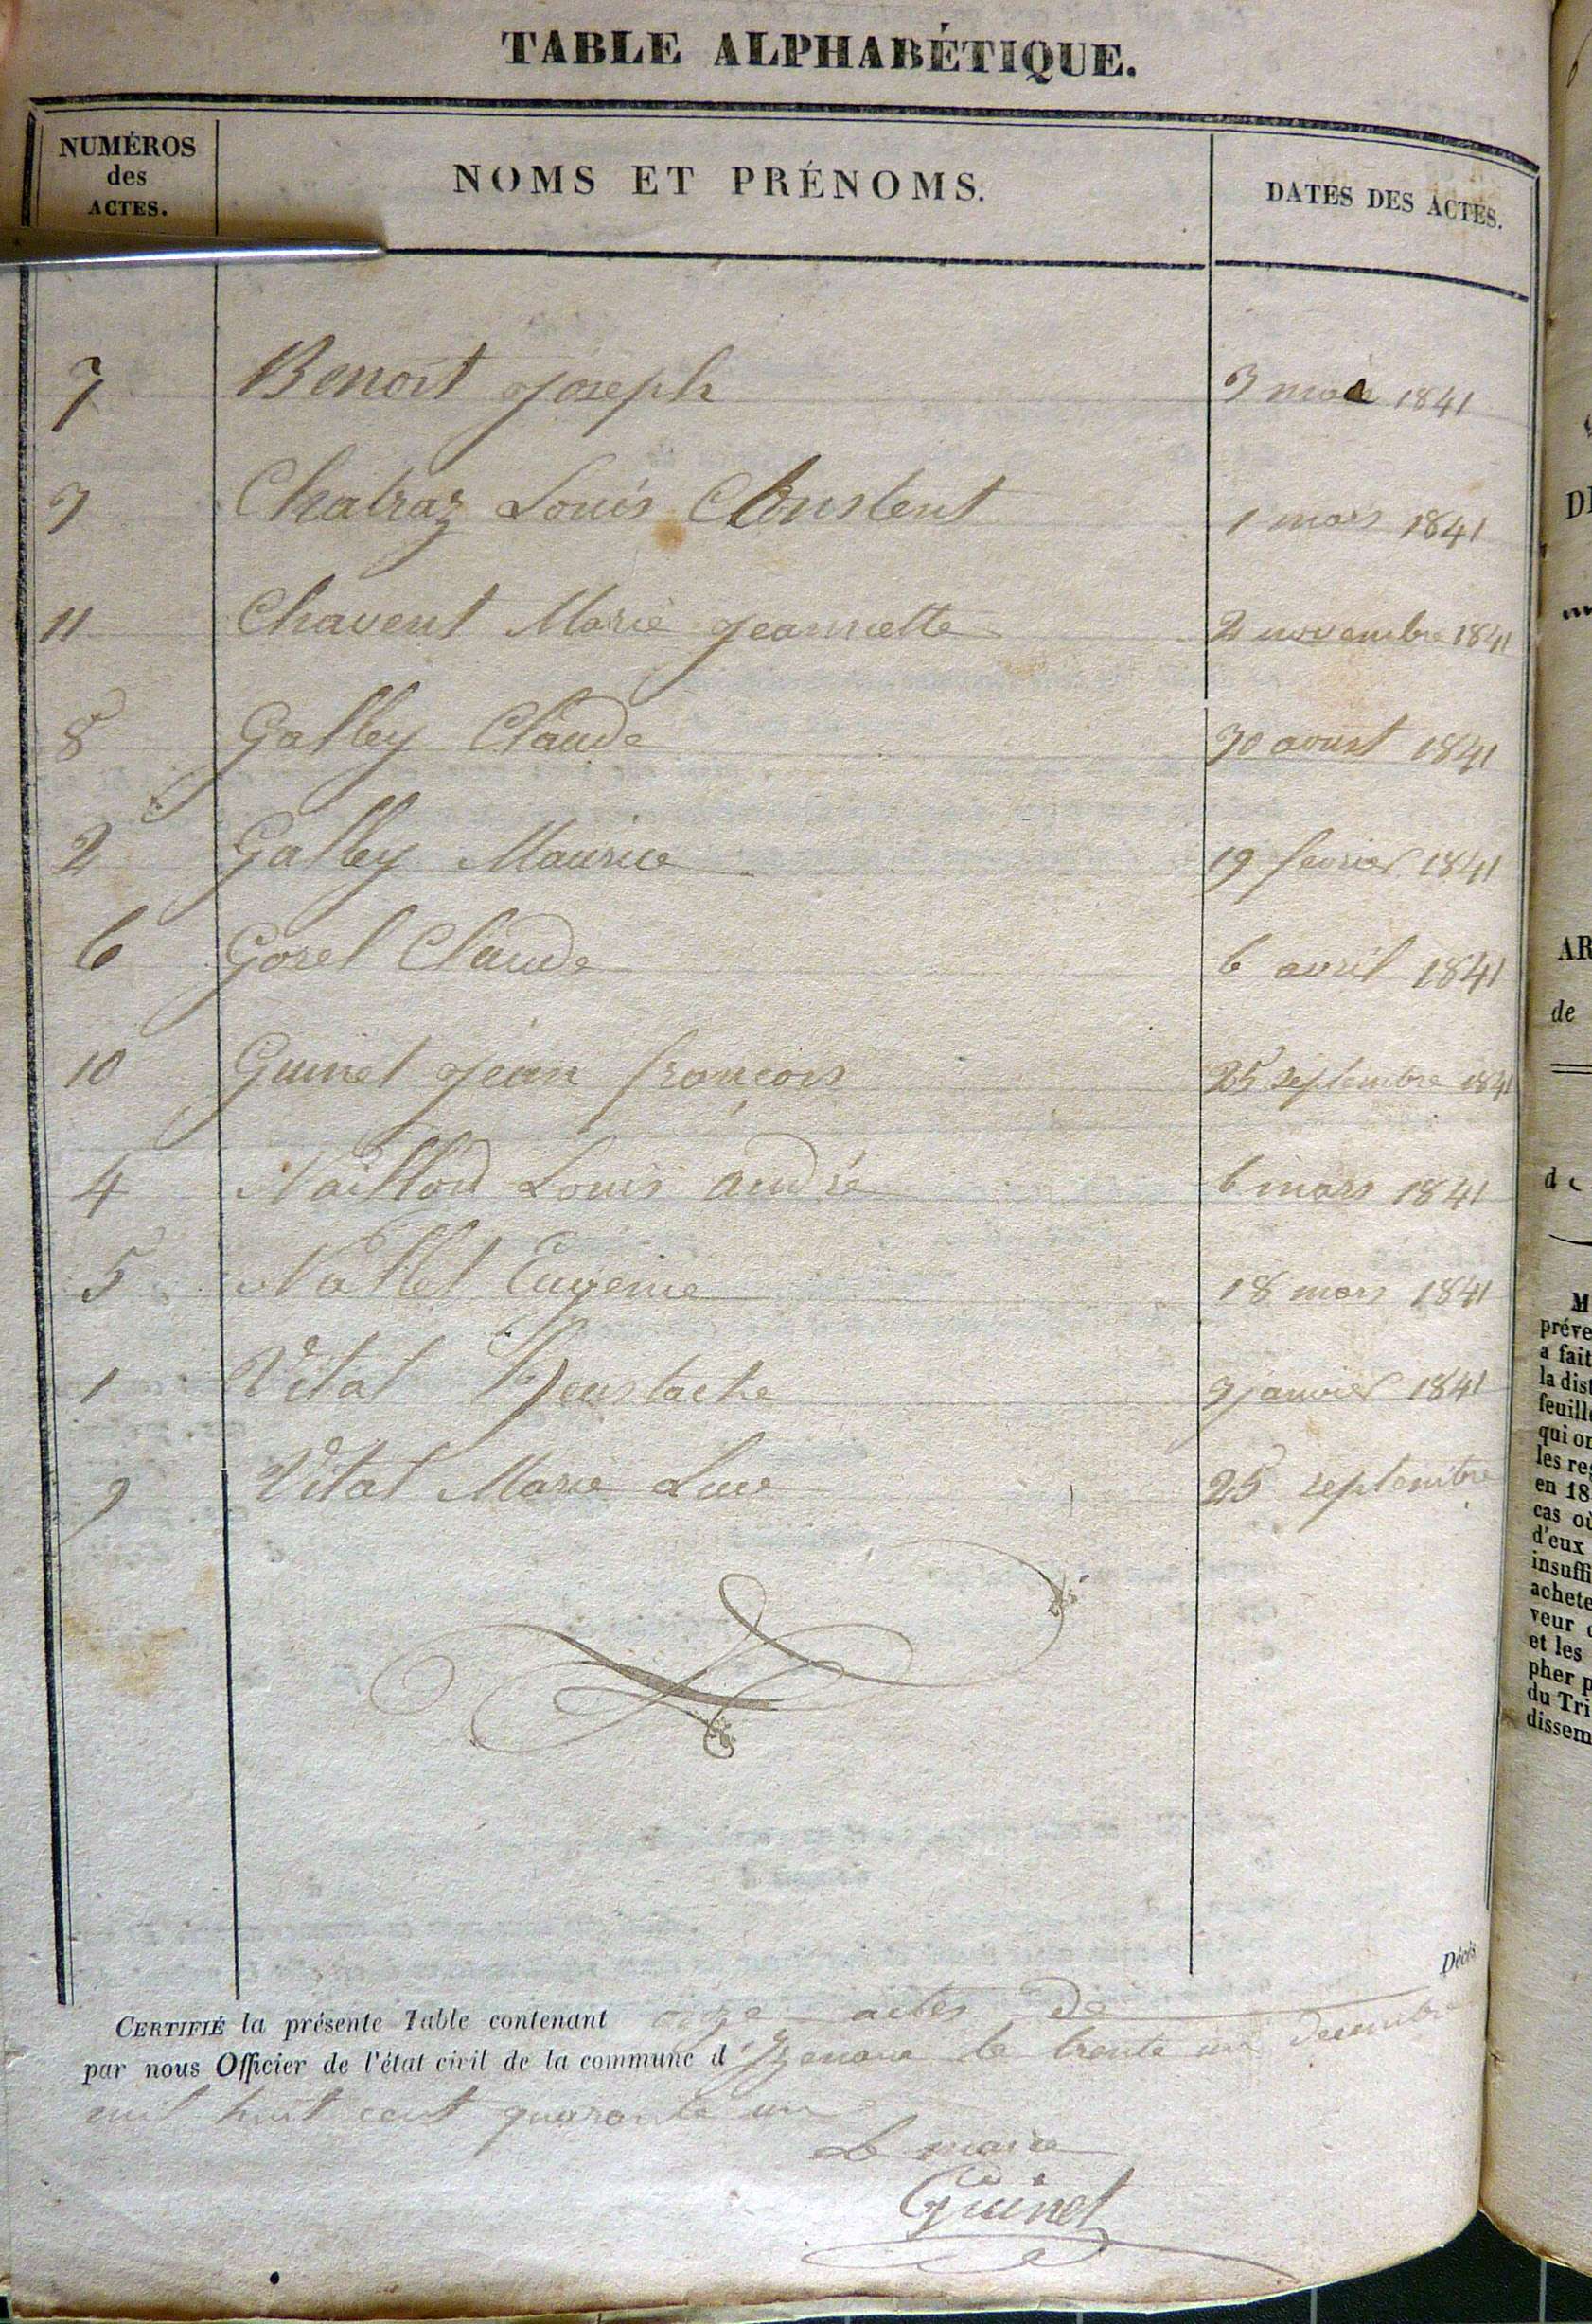 TABLE ALPHABÉTIQUE.
NUMÉROS des ACTES. NOMS ET PRÉNOMS. DATES DES ACTES.
7 Benoit Joseph 3 mai 1841
3 Chatraz Louis Constent 1 mars 1841
11 Chavent Marie Jeannette 2 novembre 1841
8 Galley Claude 30 aoust 1841
2 Galley Maurice 19 fevrier 1841
6 Gorel Claude 6 avril 1841
10 Guinet Jean françois 25 septembre 1841
4 Naillod Louis André 6 mars 1841
5 Nallet Eugenie 18 mars 1841
1 Vital Eustache janvier 1841
9 Vital Marie Luce 25 septembre
Décès
CERTIFIÉ la présente Table contenant onze actes de
par nous Officier de l'état civil de la commune d'Izenave le trente un decembre
mil huit cent quarante un
Le maire
Guinet
DE
AR
de
M
préve
a fait
la dist
feuille
qui on
les re
en 18
cas où
d'eux
insuffi
achete
veur
et les
pher p
du Tri
dissem